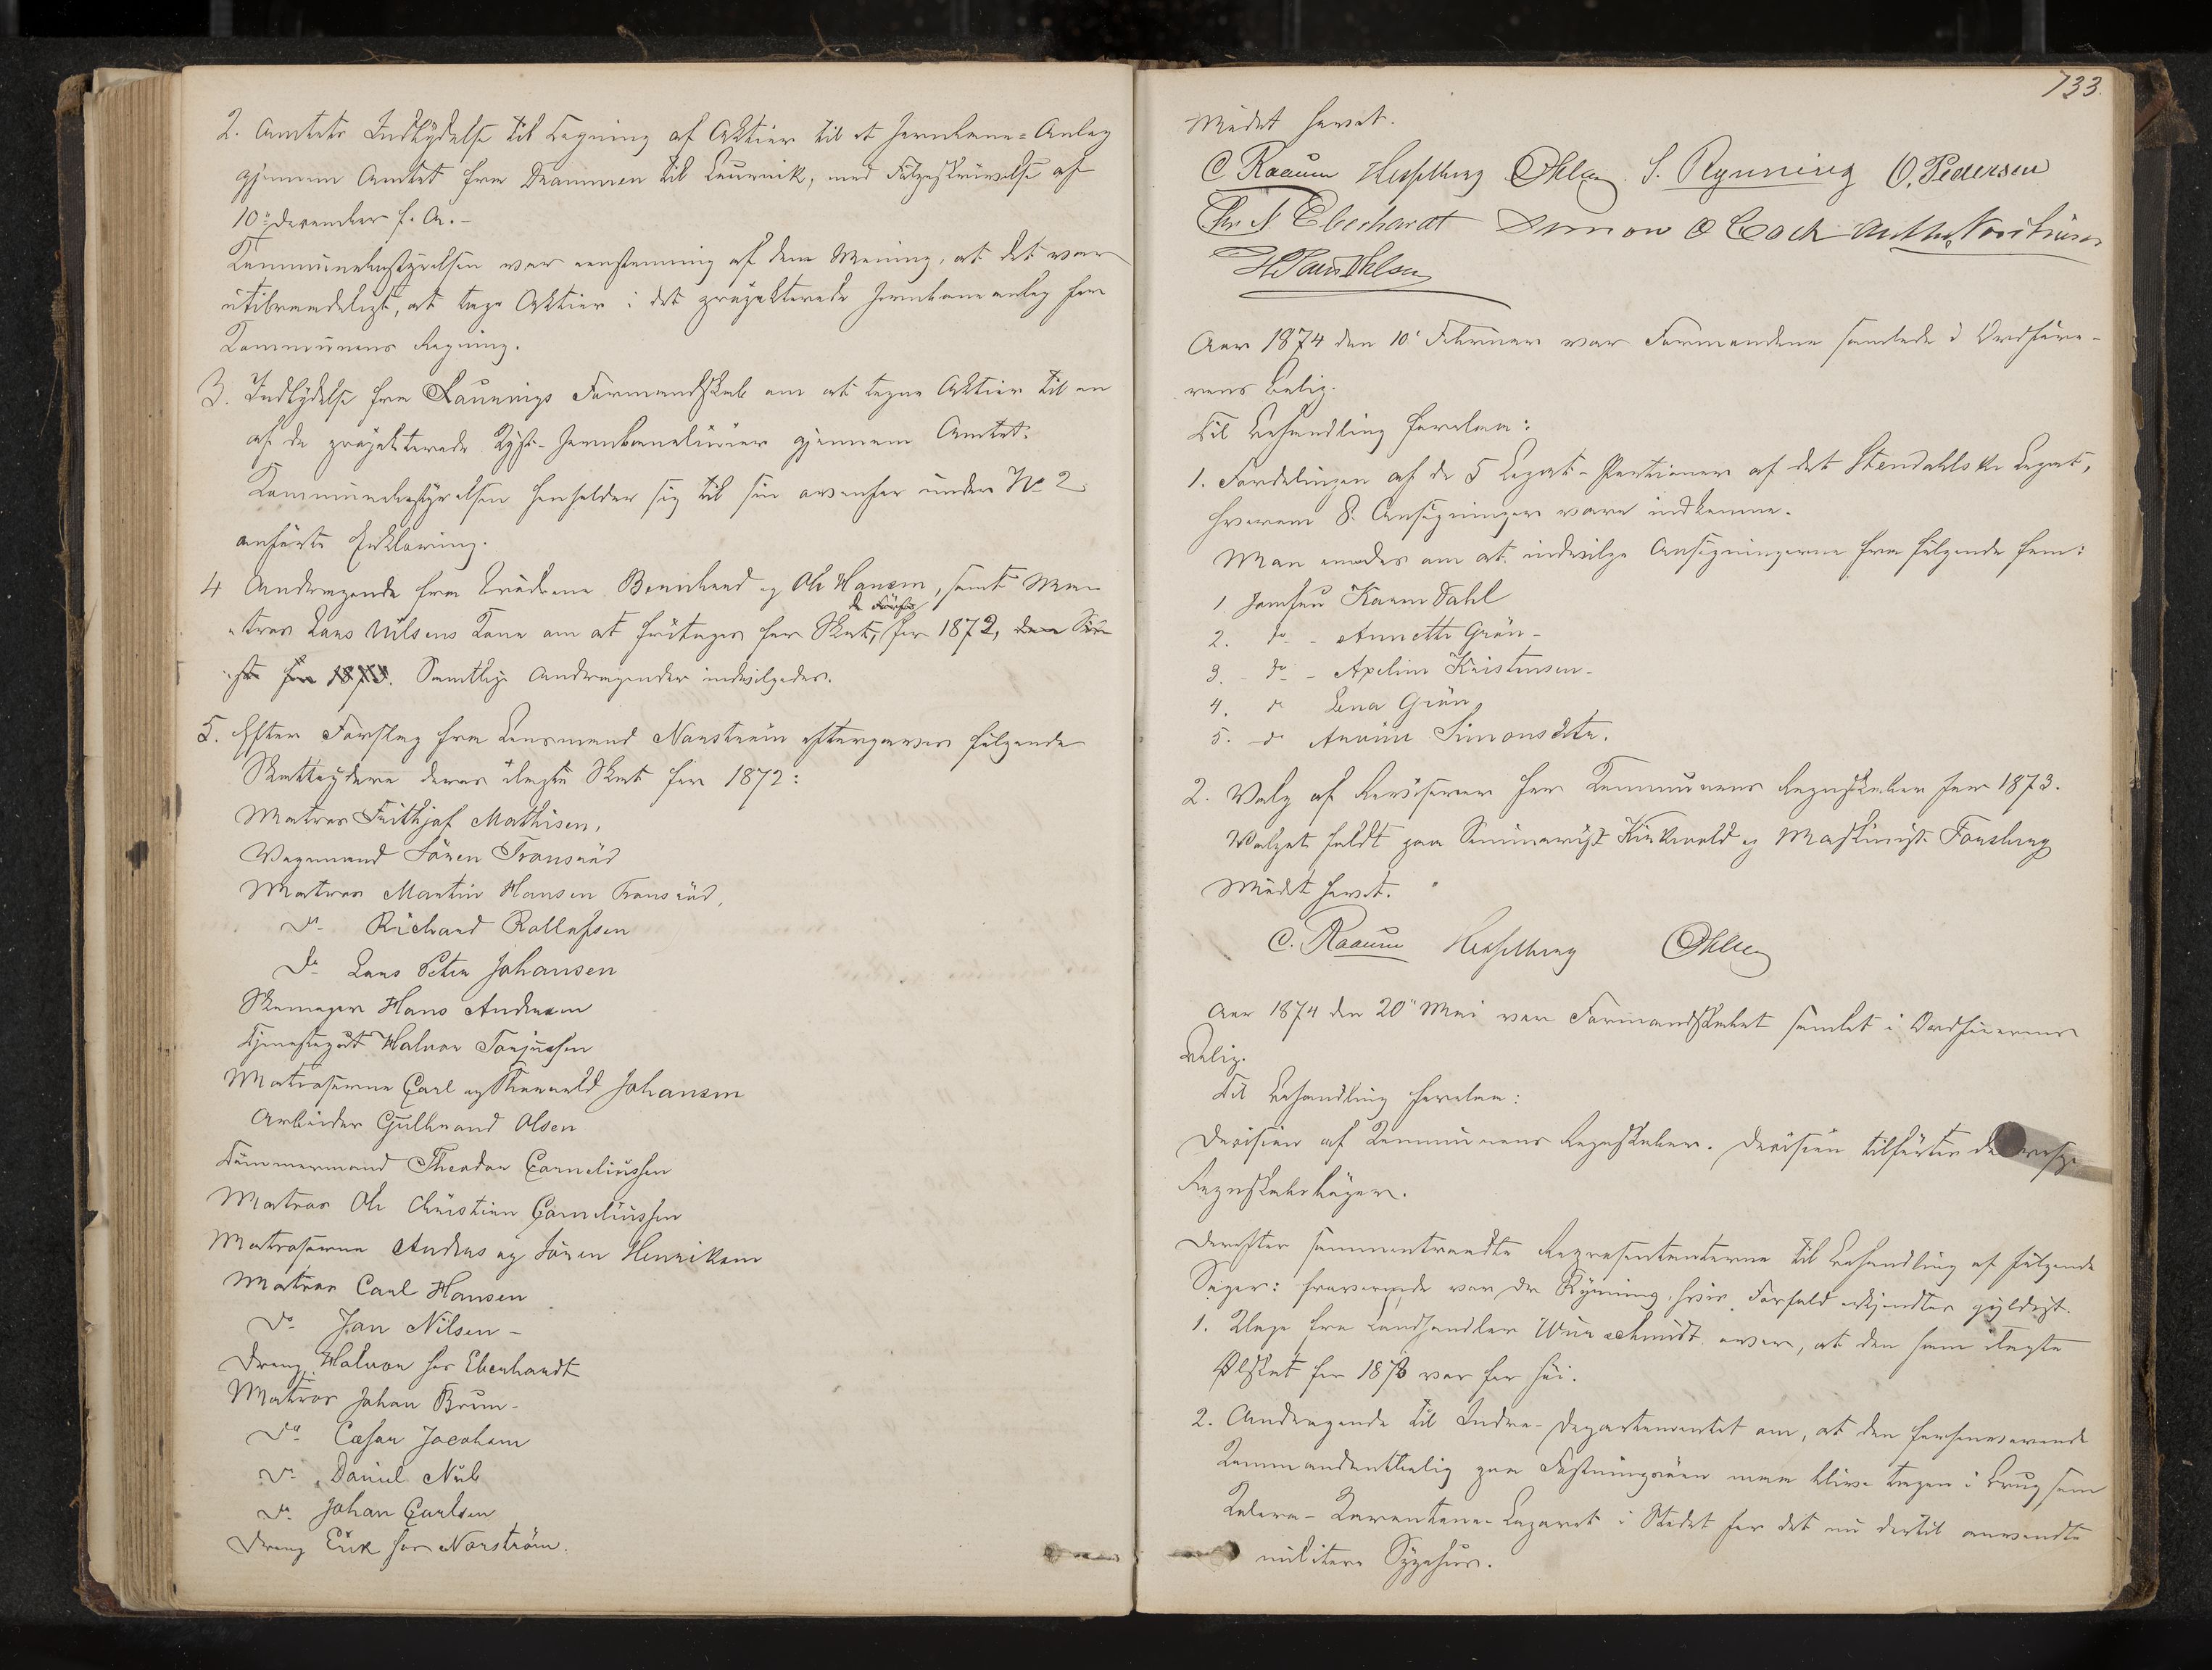 2. Amtets Indbydelse til Tegning af Aktier til et Jernbane-Anlæg
gjennem Amtet fra Drammen til Laurvik, med Følgeskrivelse af
10de December f. A. –
Kommunebestyrelsen var eenstemmig af den Mening, at det var
utilraadeligt, at tage Aktier i det projekterede Jernbaneanlæg for
Kommunens Regning.
3. Indbydelse fra Formandskab om at tegne Aktier til en
af de projekterede Kyst-Jernbanelinier gjennem Amtet.
Kommunebestyrelsen henholder sig til sin ovenfor under No 2
anførte Erklæring.
4 Andragende fra Brødrene Bernhard og Ole Hansen, samt Ma-
tros Lars Nilsens Kone om at fritages for Skat, for 1872,
for 1873. Samtlige Andragender indvilgedes.
5. Efter Forslag fra Lensmand Norstrøm eftergaves følgende
Skatteydere deres ilagte Skat for 1872:
Matros Frithjof Mathisen,
Vognmand Sören Transrud
Matros Martin Hansen Transrud,
do Richard Rollefsen
do Lars Peter Johansen
Skomager Hans Andersen
Tjenestegut Halvor Torjussen
Matroserne Carl og Thorvald Johansen
Arbeider Gulbrand Olsen
Tømmermand Theodor Corneliussen
Matros Ole Christian Corneliussen
Matroserne Andreas og Sören Henriksen
Matros Carl Hansen
do Jan Nilsen –
Dreng Halvor hos Eberhardt
Matros Johan Brun –
do Cæsar Jacobsen
do Daniel
do Johan Carlsen
Dreng Erik hos Norström.
733.
Mødet hævet.
C. Raaum Hesselberg Ohlsen S. Rynning O. Pedersen
Chr. N. Eberhardt Simon O Bock
Aar 1874 den 10' Februar var Formændene samlede i Ordføre-
rens Bolig.
Til Behandling forelaa:
1. Fordelingen af de 5 Legat-Portioner af det Stendahlske Legat,
hvorom 8 Ansøgninger vare indkomne.
Man enedes om at indvilge Ansøgningerne fra følgende fem:
1. Jomfru Karen Dahl
2. do – Annette Grön –
3. – do – Axeline Kristensen –
4. do Lena Grön
5. do Simonsdtr.
2. Valg af Revisorer for Kommunens Regnskaber for 1873.
Valget faldt paa Seminarist Kirkvold og Maskinist Forsberg
Mødet hævet.
C. Raaum Hesselberg Ohlsen
Aar 1874 den 20de Mai var Formandskabet samlet i Ordførerens
Bolig.
Til Behandling forelaa:
Decision af Kommunens Regnskaber. Decisionen tilførtes
Regnskabsbøger.
Derefter sammentraadte Repræsentanterne til Behandling af følgende
Sager: fraværende var Dr Rynning, hvis Forfald erkjendtes gyldigt.
1. Klage fra Landhandler over, at den ham ilagte
Skat for 1873 var for høi.
2. Andragende til Indre-Departementet om, at den forhenværende
Kommandantbolig paa Fæstningsøen maa blive tagen i Brug som
Kolera-Karantæne-Lazaret i Stedet for det nu dertil anvendte
militære Sygehus.